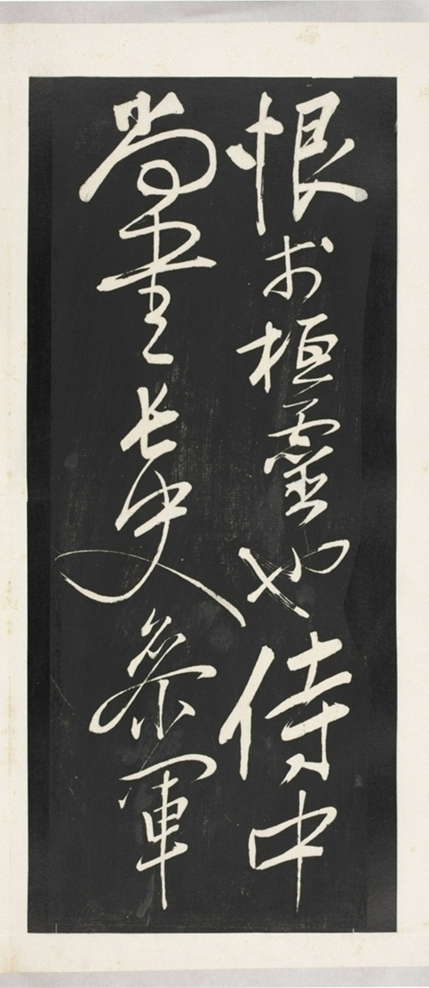 恨於桓靈也侍中
尚書長史參軍